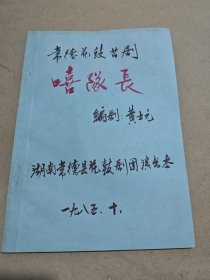 常德花鼓古剧
嘻隊長
编剧：黄士元
湖南常德县花鼓剧团演出本
一九八五.十.